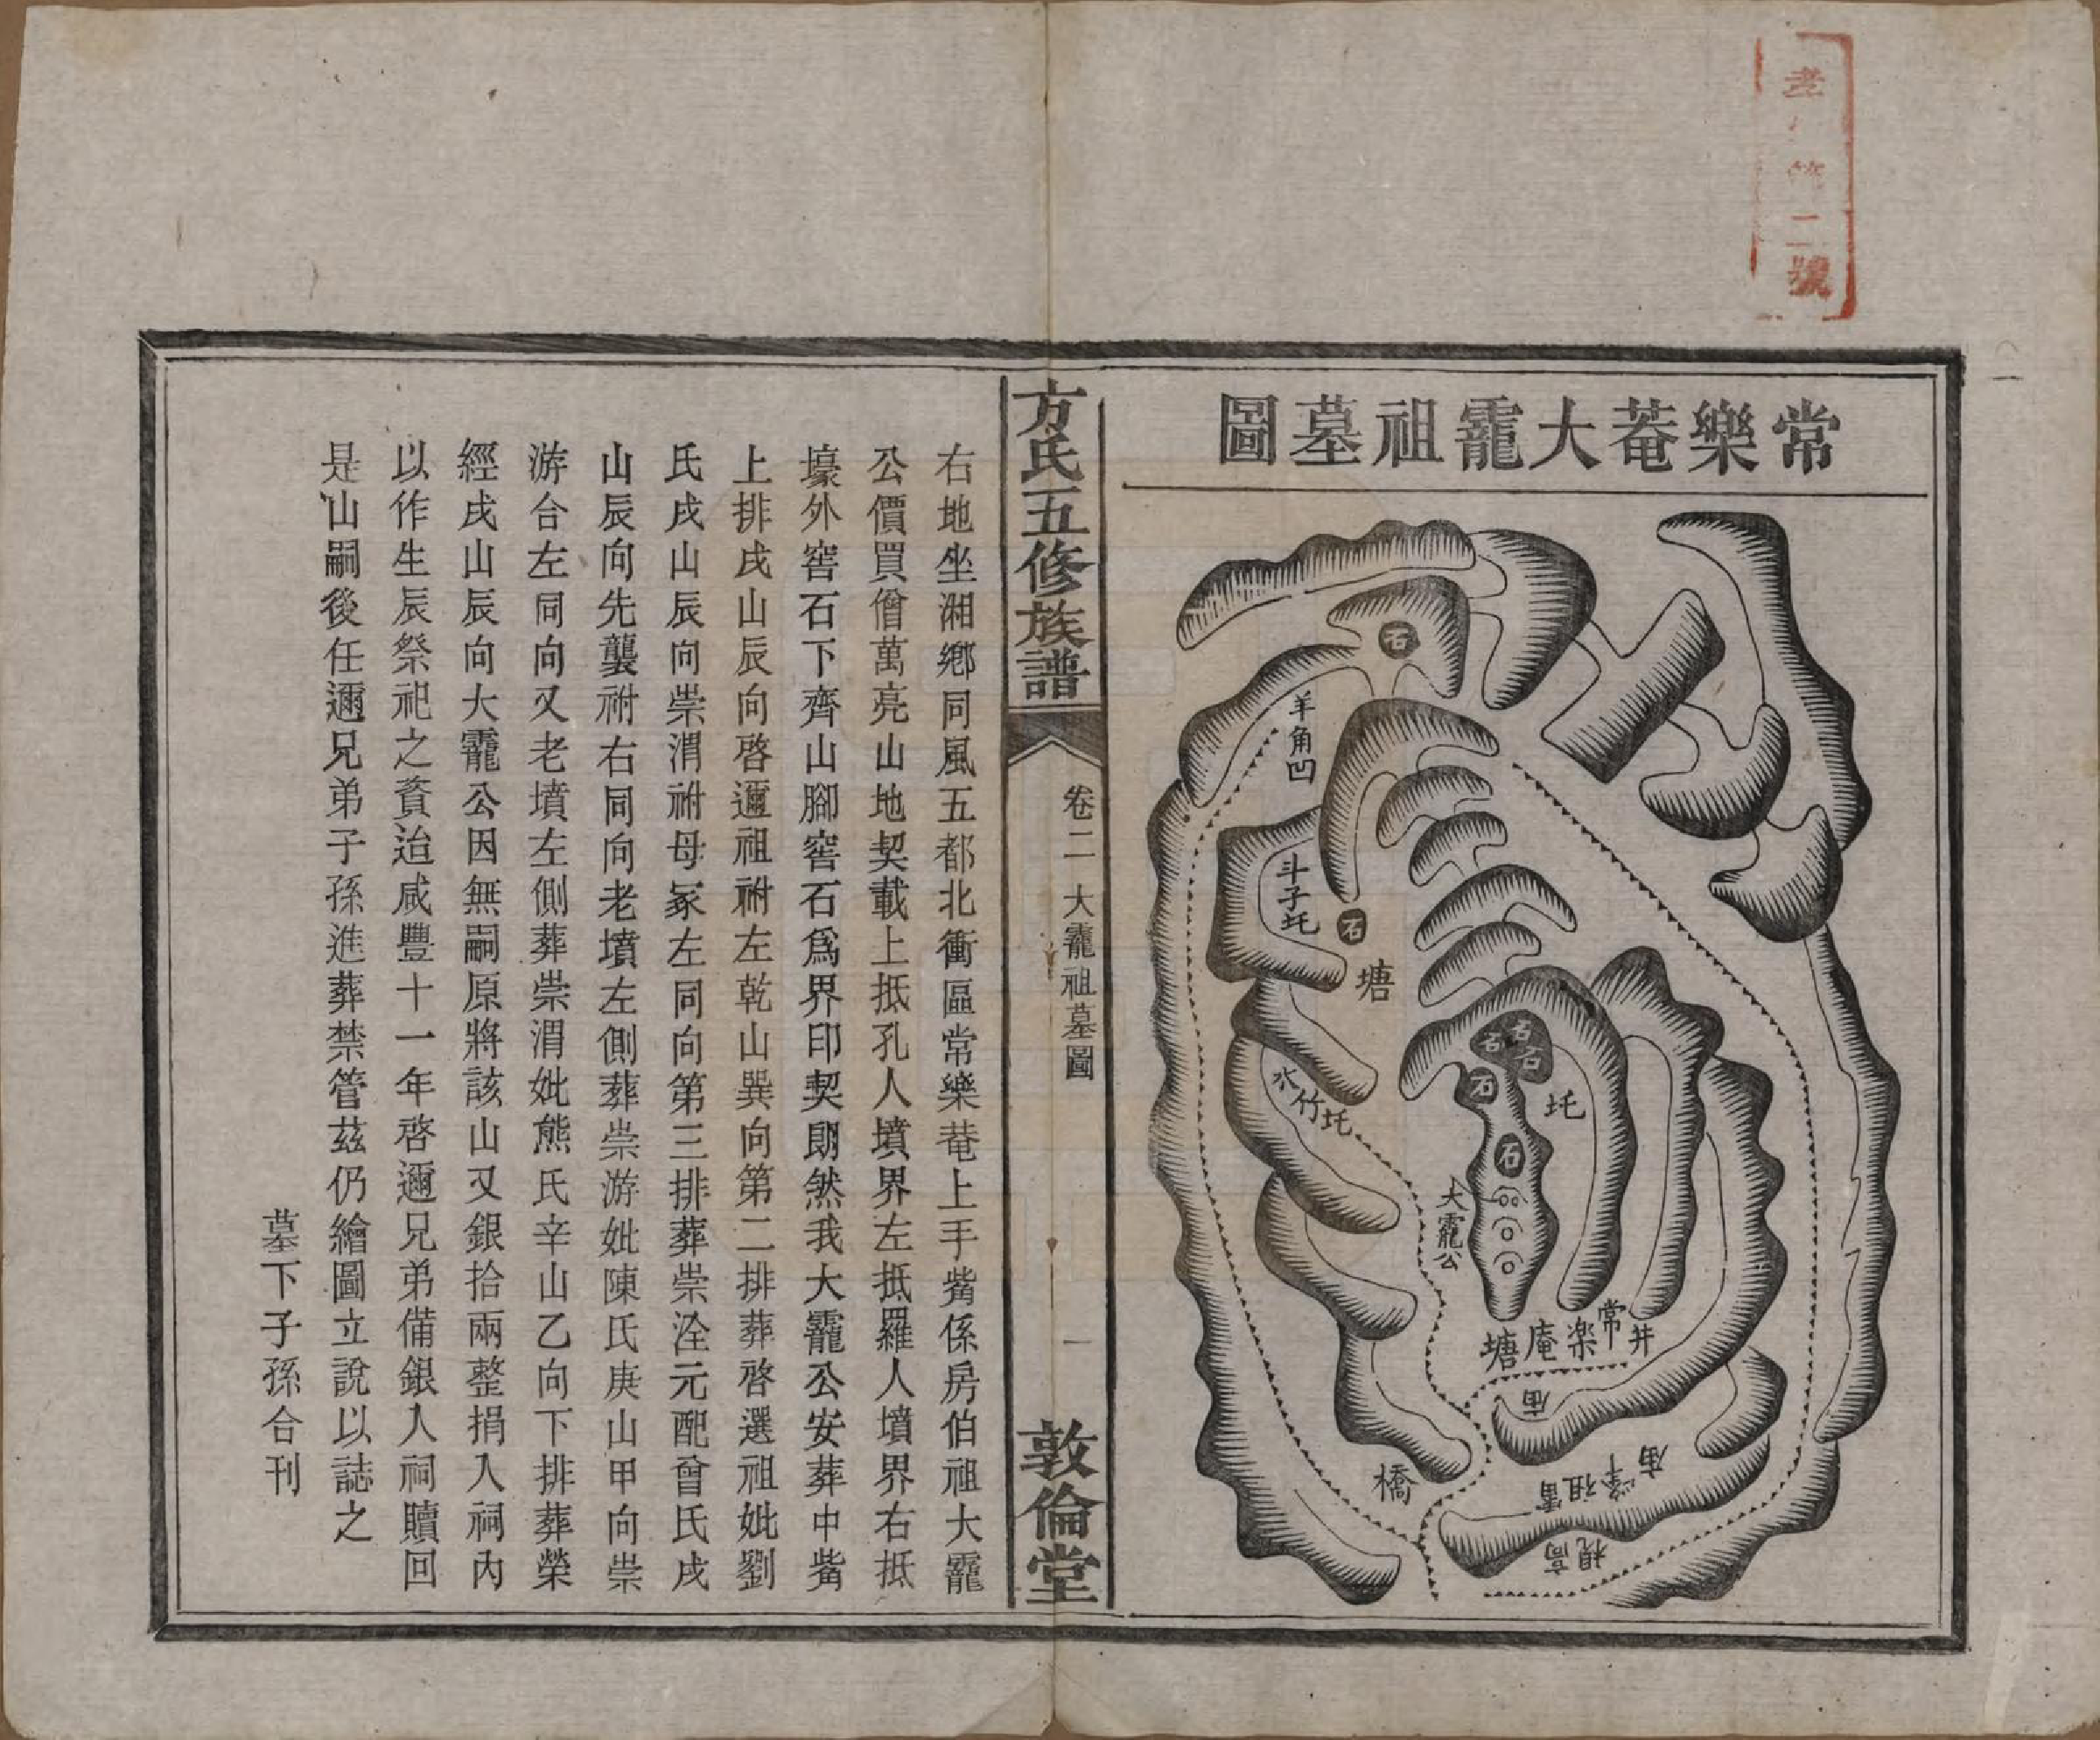 二號
常樂菴大龗祖墓圖
石
羊角凹
斗子圫
石
塘
石
石
石
石
圫
水竹圫
石
大龗公
井
常楽庵塘
庙
庙
橋
方氏五修族譜
卷二 大龗祖墓圖
一
敦倫堂
右地坐湘鄉同風五都北衝區常樂菴上手觜係房伯祖大龗
公價買僧萬亮山地契載上抵孔人墳界左抵羅人墳界右抵
壕外窖石下齊山腳窖石爲界印契朗然我大龗公安葬中觜
上排戌山辰向啓邇祖祔左乾山巽向第二排葬啓選祖妣劉
氏戌山辰向崇渭祔母冢左同向第三排葬崇淦元配曾氏戌
山辰向先襲祔右同向老墳左側葬崇游妣陳氏庚山甲向崇
游合左同向又老墳左側葬崇渭妣熊氏辛山乙向下排葬榮
經戌山辰向大龗公因無嗣原將該山又銀拾兩整捐入祠內
以作生辰祭祀之資迨咸豐十一年啓邇兄弟備銀入祠贖回
是山嗣後任邇兄弟子孫進葬禁管茲仍繪圖立說以誌之
墓下子孫合刊